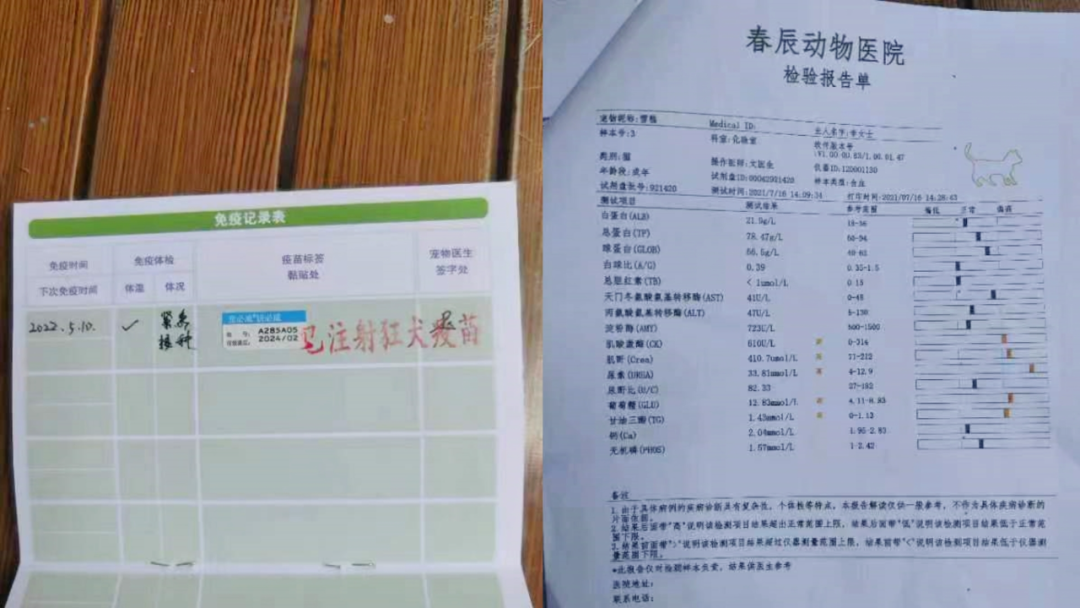 免疫记录表
免疫时间
下次免疫时间
免疫体检
体温
体况
疫苗标签
黏贴处
宠物医生
签字处
2022.5.10.
A285A05
2024/02
已注射狂犬疫苗
春辰动物医院
检验报告单
Medical ID:
样本号:3
科室:化验室
软件版本号
类别:猫
仪器ID:120001150
年龄阶段:成年
样本类型:血浆
试剂盘批号:921420
测试时间:2021/7/16 14:09:34
打印时间:2021/07/16 14:28:43
测试项目 测试结果 参考范围 偏低 正常 偏高
白蛋白(ALB) 21.9g/L
总蛋白(TP) 78.47g/L
球蛋白(GLOB) 56.5g/L
白球比(A/G) 0.39
总胆红素(TB) < 1umol/L 0-15
天门冬氨酸氨基转移酶(AST) 41U/L
丙氨酸氨基转移酶(ALT) 47U/L
淀粉酶(AMY) 723U/L
肌酸激酶(CK) 610U/L 0-314
肌酐(Crea) 410.7umol/L
尿素(UREA) 33.81mmol/L 4-12.9
尿肌比(U/C) 82.33 27-182
葡萄糖(GLU) 12.83mmol/L 4.11-8.83
甘油三酯(TG) 1.43mmol/L 0-1.13
钙(Ca) 2.04mmol/L 1.95-2.83
无机磷(PHOS) 1.57mmol/L 1-2.42
备注
1.由于具体病例的疾病诊断具有复杂性,个体性等特点,本报告解读仅供一般参考,不作为具体疾病诊断的
片面依据。
2.结果后面带"高"说明该检测项目结果超出正常范围上限,结果后面带"低"说明该检测项目结果低于正常范
围下限。
3.结果前面带">"说明该检测项目结果超过仪器测量范围上限,结果前带"<"说明该检测项目结果低于仪器测
量范围下限。
*此报告仅对检测样本负责,结果供医生参考
医院地址:
联系电话: